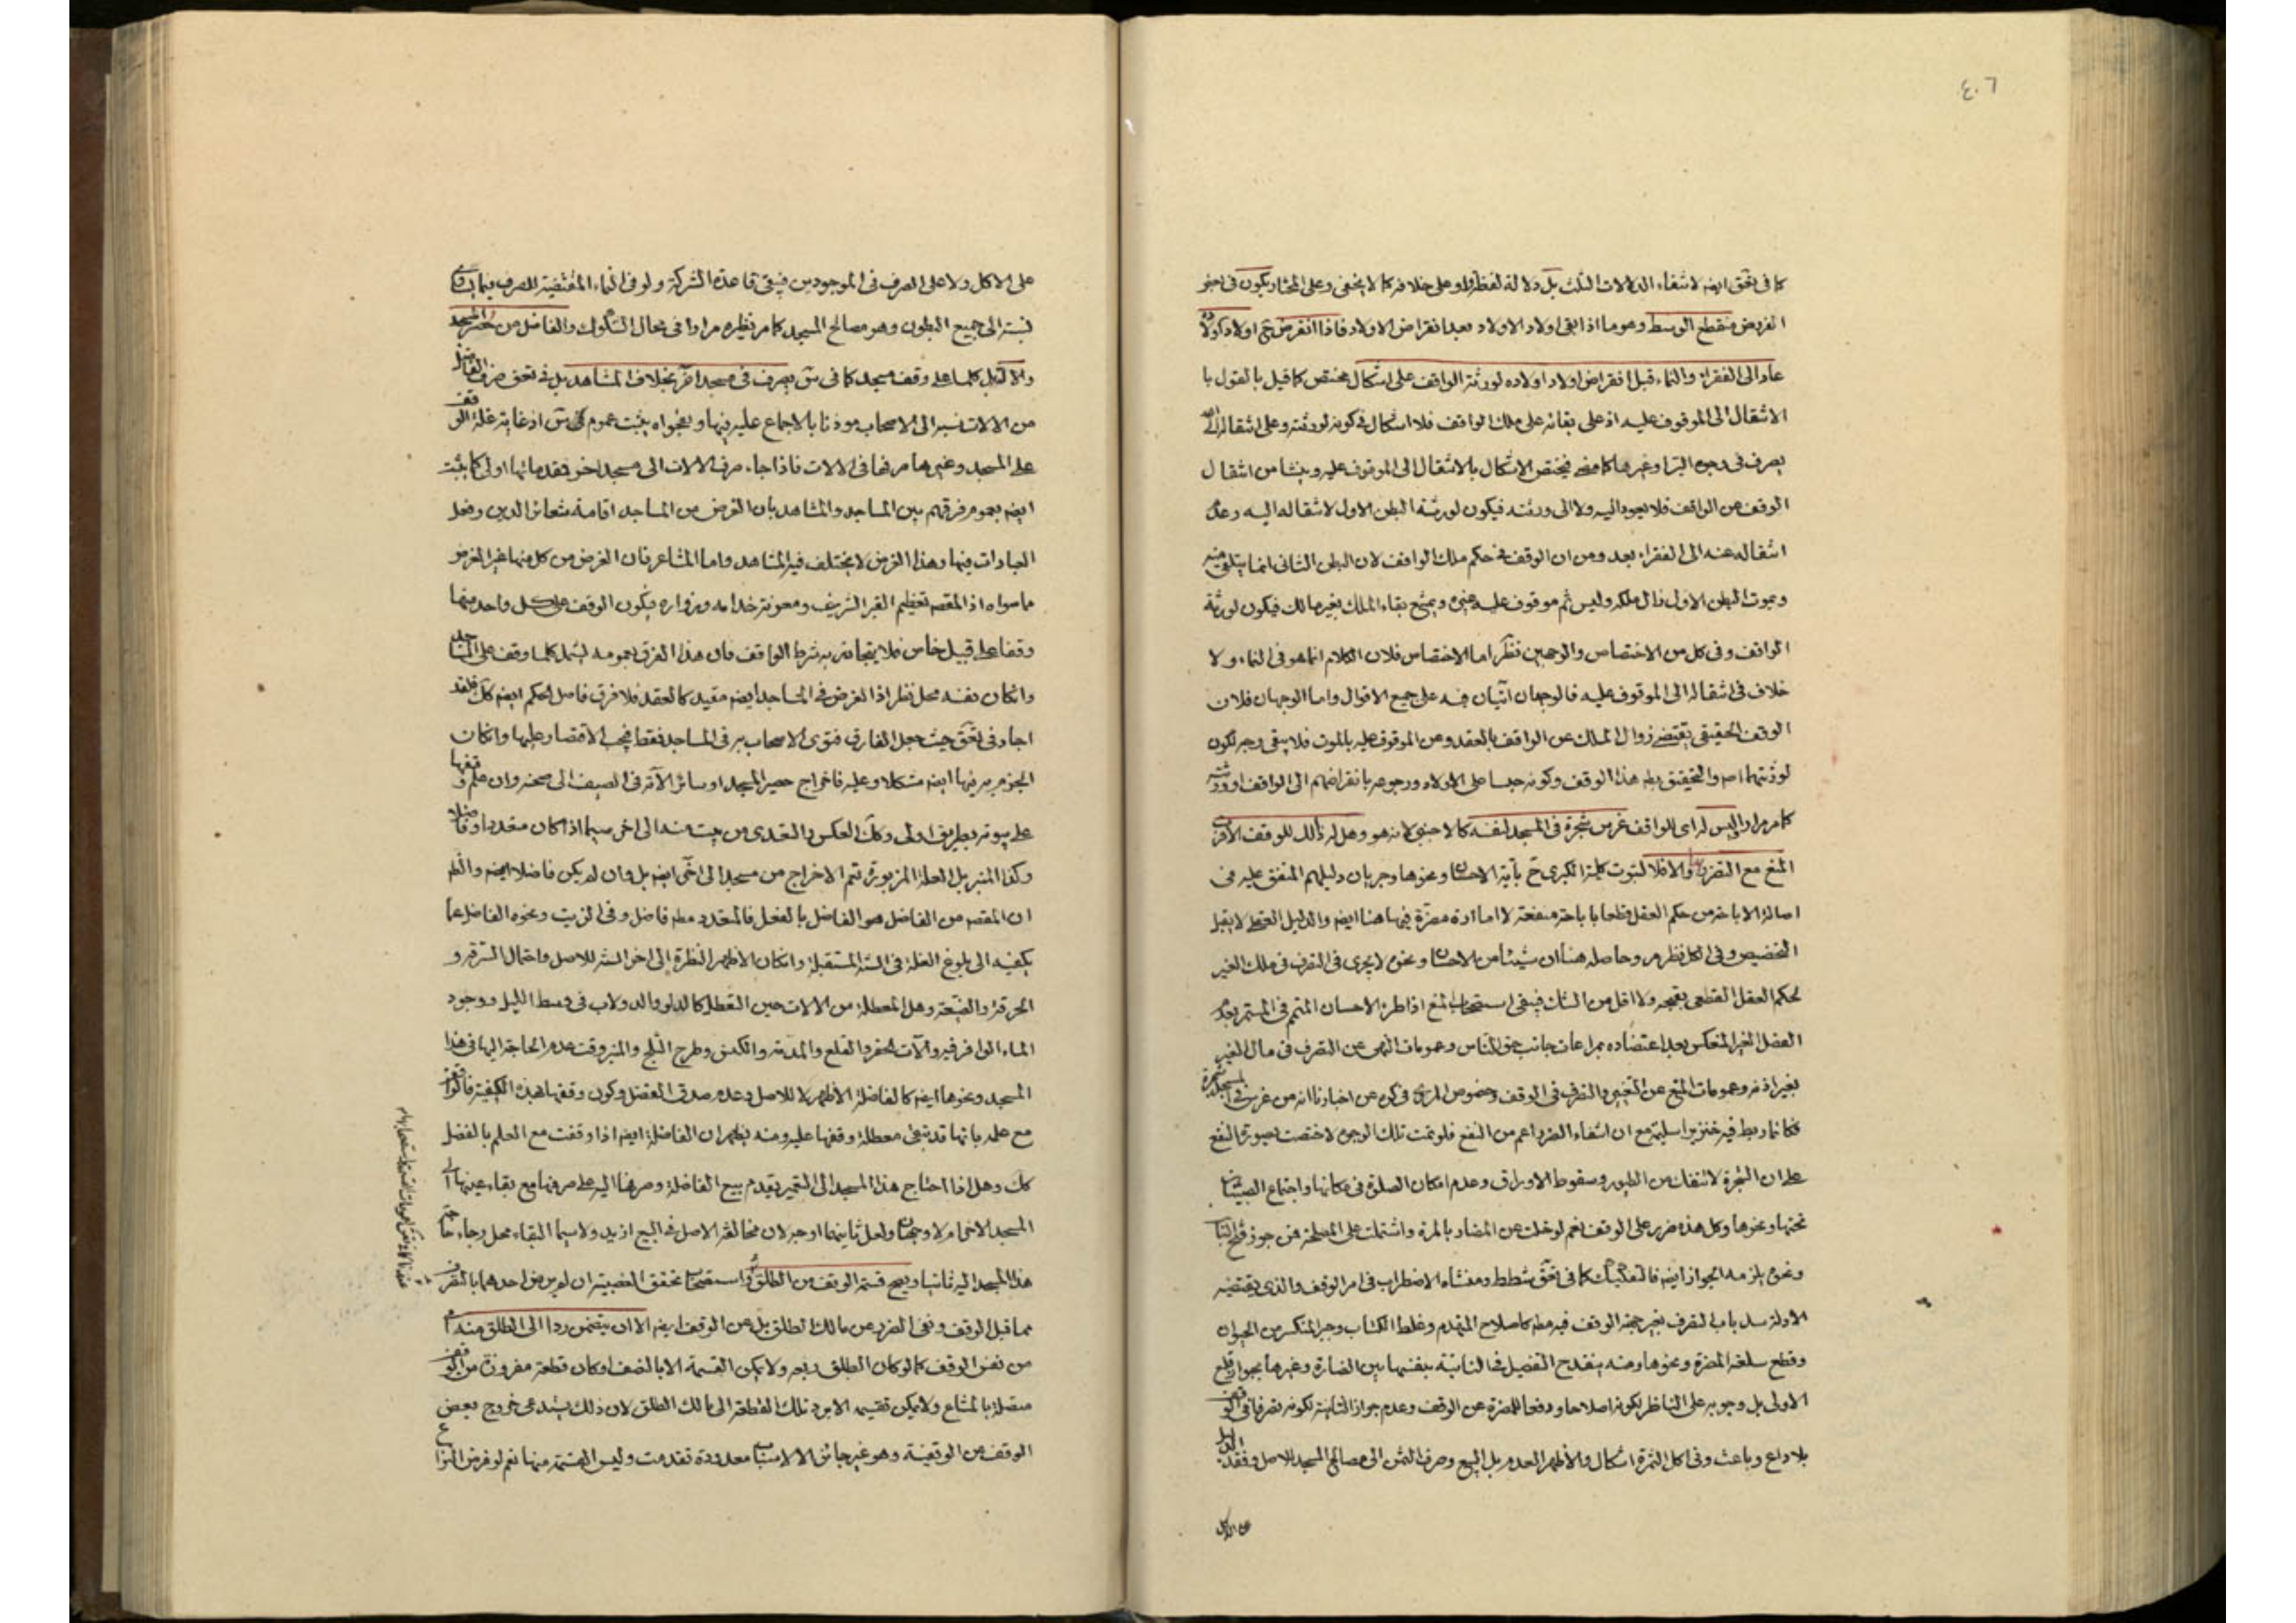 ٤٠٦
كما في تحقق ايضه لانتفاء الدلالات الثلث بل دلالة لفظ ولو على خلافه كما لا يخفى وعلى المختار يكون في بعض
الفروض منقطع الوسط وهو ما اذا بقى اولاد الاولاد بعد انقراض الاولاد فاذا انقرض اولاد اولاده
عاد الى الفقراء والنماء قبل انقراض اولاد اولاده لورثة الواقف على اشكال مختص كما قيل بالقول با
لانتقال الى الموقوف عليه اذ على بقائه على ملك الواقف فلا اشكال في كونه لورثته وعلى انتقاله الى الله
يصرف في وجوه البر او غيرها كما مضى فيختص الاشكال بالانتقال الى الموقوف عليه وينشا من انتقال
الوقف عن الواقف فلا يعود اليه ولا الى ورثته فيكون لورثة البطن الاول لانتقاله اليه وعدم
انتقاله عنه الى الفقراء بعد ومن ان الوقف في حكم ملك الواقف لان البطن الثاني انما يتلقى منه
وبموت البطن الاول زال ملكه وليس ثم موقوف عليه غيره ويمتنع بقاء الملك بغير مالك فيكون لورثة
الواقف وفي كل من الاختصاص والوجهين نظر اما الاختصاص فلان الكلام انما هو في النماء ولا
خلاف في انتقاله الى الموقوف عليه فالوجهان اتيان فيه على جميع الاقوال واما الوجهان فلان
الوقف الحقيقي يقتضي زوال الملك عن الواقف بالعقد وعن الموقوف عليه بالموت فلا يبقى وجه لكون
لورثتهما اصه والتحقيق بطه هذا الوقف وكونه حبسا على الاولاد ورجوعه بانقراضهم الى الواقف او ورثته
كما مر مرارا وليس له اي للواقف غرس شجرة في المسجد لنفسه كالاجنبي لانه هو وهل له ذلك للوقف الاقرب
المنع مع التضرر والا فلا لثبوت كلية الكبرى ح بآية الاحسان ونحوها وجريان دليلهم المتفق عليه في
اصالة الاباحة من حكم العقل قطعا باباحة منفعة لا امارة مضرة فيها هنا ايضه والدليل العقلي لا يقبل
التخصيص وفي الكل نظر مر وحاصله هنا ان شيئا من الاحسان ونحوه لا يجري في التصرف في ملك الغير
لحكم العقل القطعي بقبحه ولا اقل من الشك فيبقى استصحاب المنع اذا طرء الاحسان المتمم في المستمر بعدم
الفصل الغير المنعكس بعد اعتضاده بمراعات جانب حق الناس وعمومات النهي عن التصرف في مال الغير
بغير اذنه وعمومات المنع عن التغيير والتصرف في الوقف وخصوص المروي في عن اخبارنا انه من غرس في المسجد شجرة
فكانما ربط فيه خنزيرا سليمة مع ان انتفاء الضرر اعم من النفع فلو تمت تلك الوجوه لاختصت بصورة النفع
على ان الشجرة لا تنفك من الطيور وسقوط الاوراق وعدم امكان الصلوة في مكانها واجتماع الصبيان
تحتها ونحوها وكل هذه ضرر على الوقف نعم لو خلت عن المضار بالمرة واشتملت على المصلحة فمن جوز فتح الباب
ونحوه يلزمه الجواز ايضه فالتفكيك كما في تحقق شطط ومنشاه الاضطراب في امر الوقف والذي يقتضيه
الادلة سد باب التصرف بغير جهة الوقف فيه مطه كاصلاح المتهدم وغلط الكتاب وجبر المنكسر من الحيوان
وقطع سلعته المضرة ونحوها ومنه ينقدح التفصيل في النابتة بنفسها بين الضارة وغيرها بجواز قلع
الاولى بل وجوبه على الناظر لكونه اصلاحا ودفعا للمضرة عن الوقف وعدم جواز الثانية لكونه تصرفا في الوقف
بلا داع وباعث وفي اكل الثمرة اشكال والاظهر العدم بل البيع وصرف الثمن الى مصالح المسجد للاصل وفقد الدليل
على الاكل
على الاكل ولا على الصرف في الموجودين فيبقى قاعدة الشركة ولو في النماء المقتضية للصرف فيما يتساوى
نسبته الى جميع البطون وهو مصالح المسجد كما مر نظيره مرارا في مجال الشكوك والفاضل من حصر المسجد
والاته بل كلما على وقف مسجد كما في س يصرف في مسجد اخر بخلاف المشاهد بل في تحقق صرف الفاضل
من الالات نسبه الى الاصحاب موذنا بالاجماع عليه فيها وبفحواه يثبت عموم كما في س اذ غايته غلة الوقف
على المسجد وغيرها صرفها في الالات فاذا جاء صرف الالات الى مسجد اخر فقد مائها اولى كما يثبت
ايضه بعموم فرقهم بين المساجد والمشاهد بان الغرض من المساجد اقامة شعائر الدين وفعل
العبادات فيها وهذا الغرض لا يختلف فيه المشاهد واما المشاعر فان الغرض من كل منها غير الغرض
ما سواه اذ المقصه تعظيم القبر الشريف ومعونة خدامه وزواره فيكون الوقف على كل واحد منها
وقفا على قبيل خاص فلا يتجاوز به شرط الواقف فان هذا الفرق بعمومه يشمل كلما وقف على المساجد
وانكان بنفسه محل نظر اذ الغرض في المساجد ايضه مقيد كالعقد فلا فرق فاصل الحكم ايضه كك فلقد
اجاد في تحقق حيث جعل الفارق فتوى الاصحاب به في المساجد فقط فيجب الاقتصار عليها وانكان
الجزم به فيها ايضه مشكلا وعليه فاخراج حصير المسجد او سائر الآته في الصيف الى صحنه وان علم وقفها
على بيوته بطريق اولى وكك العكس والتعدي من بيت منه الى اخر سيما اذا كان متعددا وفاضلا
وكذا المنبر بل العلة المزبورة تتم الاخراج من مسجد الى اخر ايضه بل وان لم يكن فاضلا ايضه والظه
ان المقصه من الفاضل هو الفاضل بالفعل فالمتعدد مطه فاضل وفي الزيت ونحوه الفاضل عما
يكفيه الى بلوغ الغلة في السنة المستقبلة وانكان الاظهر النظرة الى اخر السنة للاصل واحتمال السرقة و
الحرقة والضيعة وهل المعطلة من الالات حين التعطل كالدلو والدولاب في وسط الليل ووجود
الماء الوافر فيه والآت الحفر والقلع والهدم والكنس وطرح الثلج والمنبر وقت عدم الحاجة اليها في هذا
المسجد ونحوها ايضه كالفاضلة الاظهر لا للاصل وعدم صدق الفضل وكون وقفها هذه الكيفية فالواقف
مع علمه بانها قد تبقى معطلة وقفها عليه ومنه يظهر ان الفاضلة ايضه اذا وقفت مع العلم بالفضل
كك وهل اذا احتاج هذا المسجد الى التعمير يقدم بيع الفاضلة وصرفها اليه على صرفها مع بقاء عينها الى
المسجد الاخر ام لا وجهان ولعل ثانيهما اوجه لان مخالفة الاصل في البيع ازيد ولا سيما البقاء محل رجاء حاجة
هذا المسجد اليه ثانيا ويصح قسمة الوقف من الطلق واستصحاب تحقق الغصبية ان لم يرض احدهما بالتصرف
مما قبل الوقف ونفي الضرر عن مالك الطلق بل عن الوقف ايضه الا ان يتضمن ردا الى الطلق منه
من نفس الوقف كما لو كان الطلق ربعه ولا يمكن القسمة الا بالنصف او كان قطعة مفروزة من الوقف
متصلة بالمشاع ولا يمكن تقسيمه الا برد تلك القطعة الى مالك الطلق لان ذلك يستدعي خروج بعض
الوقف من الوقفية وهو غير جائز الا لاسباب معدودة تقدمت وليس القسمة منها نعم لو فرض النزاع